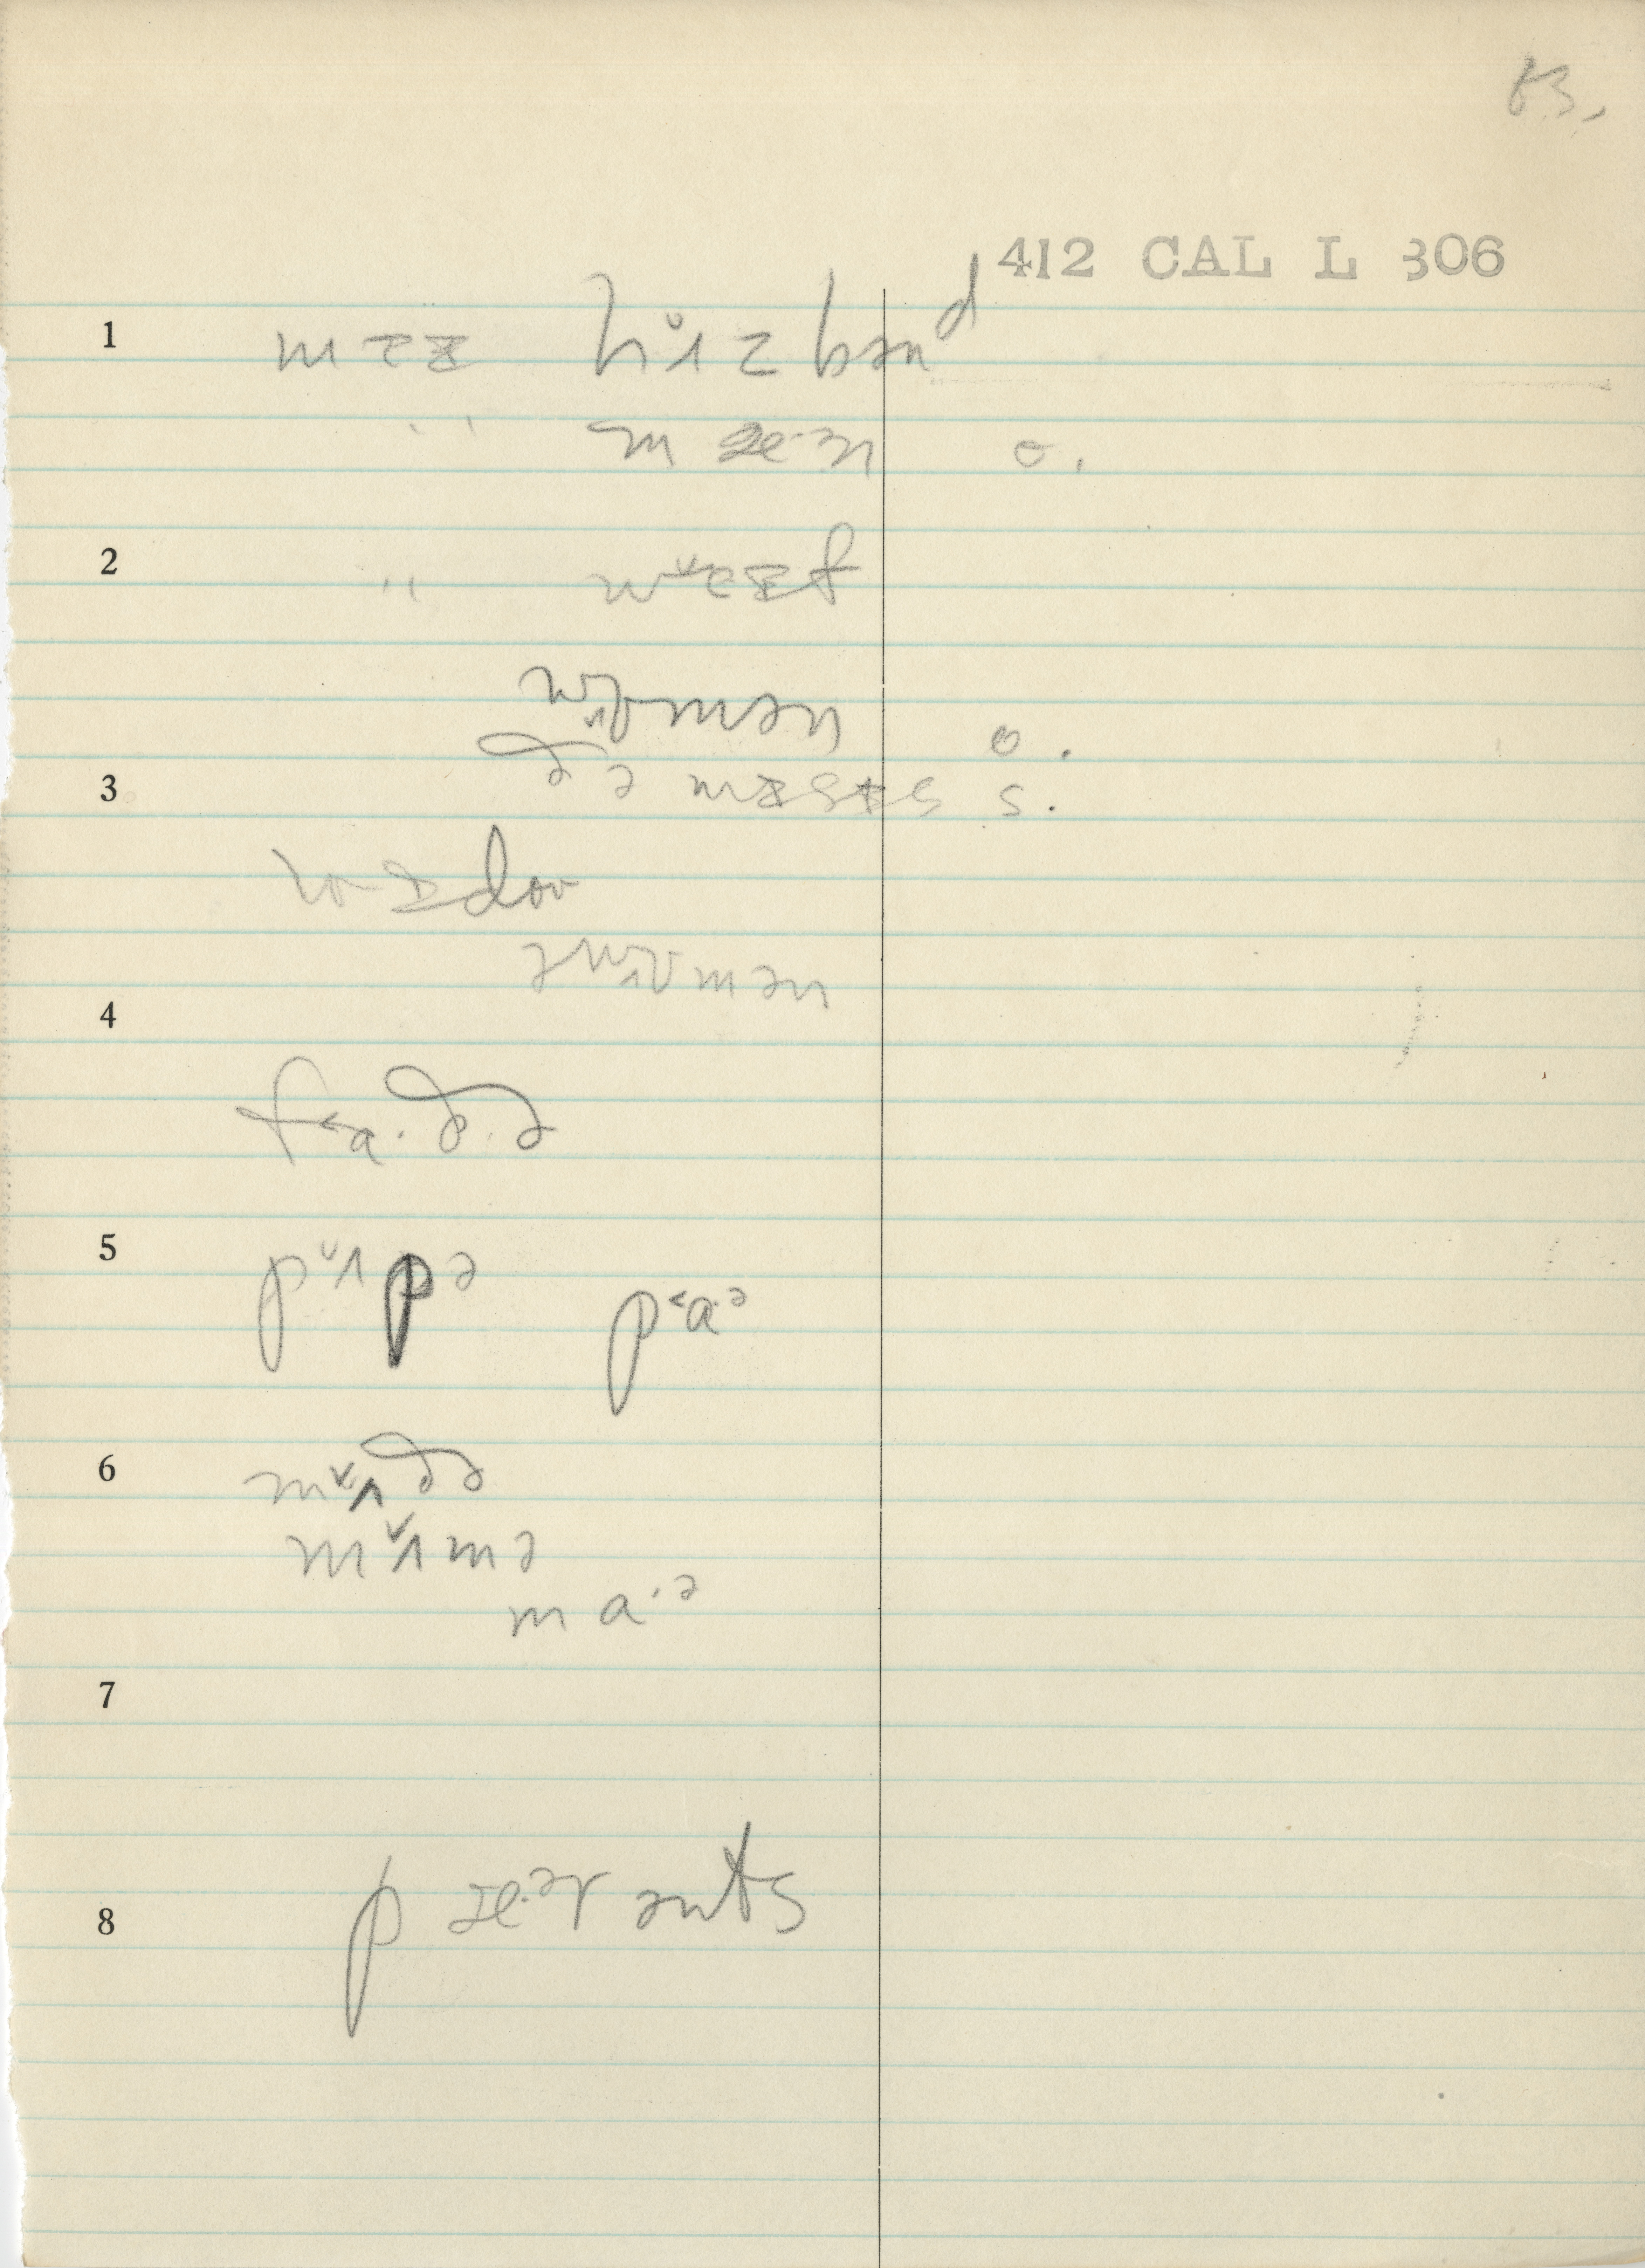 83.
412 CAL L 306
1 mɐɪ hʌ̆zbənᵈ
" mæ·n o.
2 " wɐɪf
wʊmən o.
3 ðə mɪsɪs s.
wɪdoʊ
ə wʊmən
4
f˂a·ð·ə
5 p˅ʌpə p˂a·ᵊ
6 m˅ʌðə
m˅ʌmə
ma·ᵊ
7
8 pæ·ᵊrənts